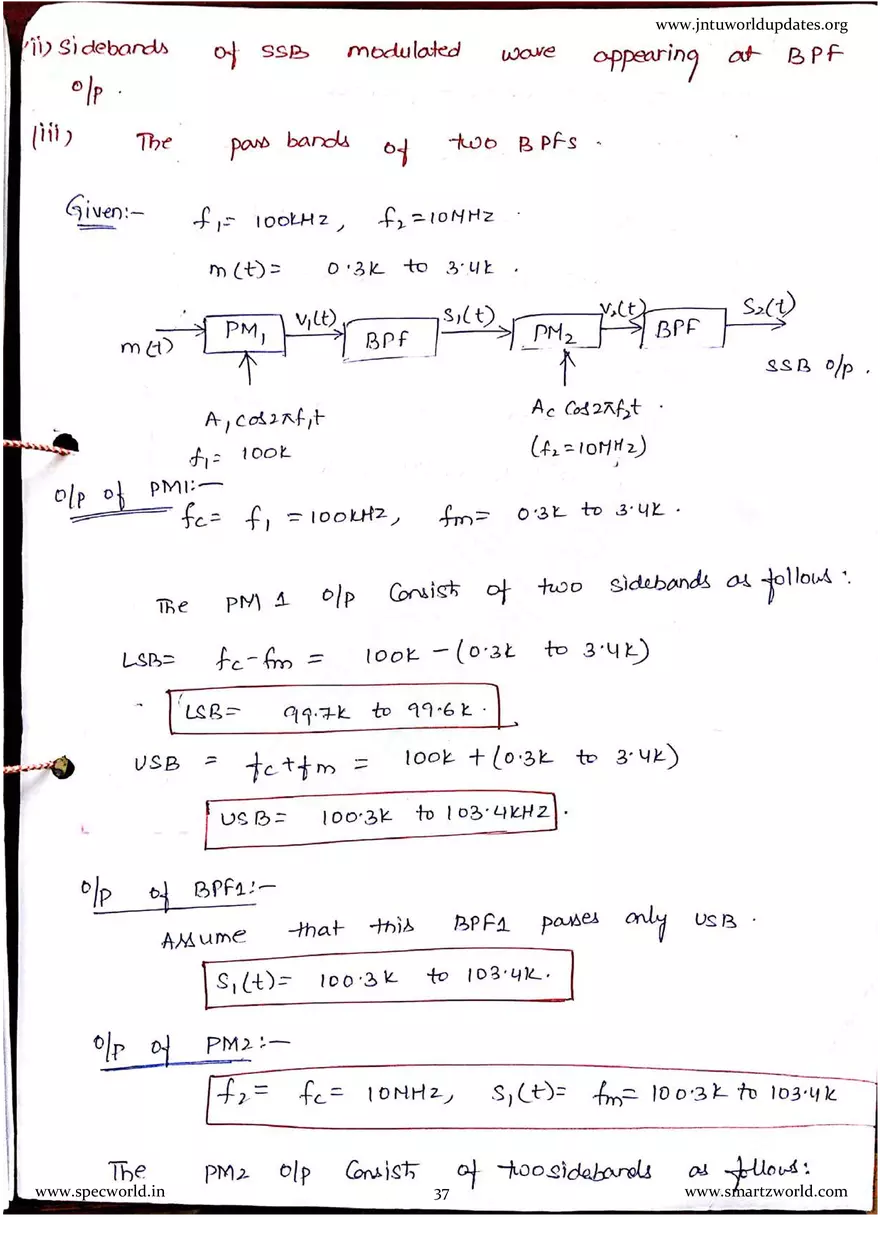 www.jntuworldupdates.org
(ii) Sidebands of SSB modulated wave appearing at BPF
o/p .
(iii) The pass bands of two BPFs .
Given:-
f₁= 100kHz, f₂=10MHz .
m(t)= 0.3k to 3.4k .
m(t) PM₁ v₁(t) BPF S₁(t) PM₂ v₂(t) BPF S₂(t)
SSB o/p .
A₁cos2πf₁t Ac Cos2πf₂t .
f₁= 100k (f₂=10MHz)
o/p of PM1:-
fc= f₁ =100kHz, fm= 0.3k to 3.4k .
The PM 1 o/p Consists of two sidebands as follows:
LSB= fc-fm = 100k -(0.3k to 3.4k)
LSB= 99.7k to 99.6k .
USB = fc+fm = 100k +(0.3k to 3.4k)
USB= 100.3k to 103.4kHz .
o/p of BPF1:-
Assume that this BPF1 passes only USB .
S₁(t)= 100.3k to 103.4k.
o/p of PM2:-
f₂= fc= 10MHz, S₁(t)= fm= 100.3k to 103.4k
The PM2 o/p Consists of two sidebands as follows:
www.specworld.in 37 www.smartzworld.com